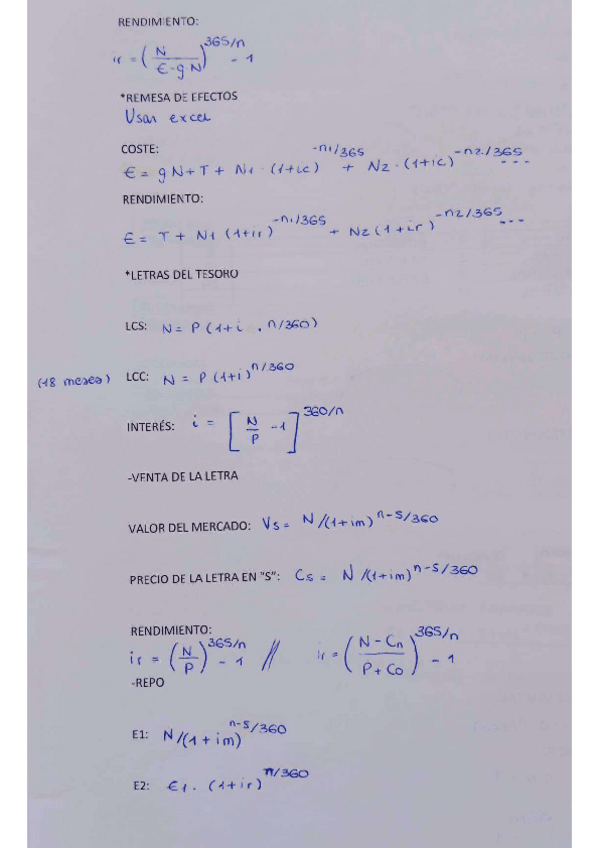 RENDIMIENTO:
ir = (N / E-gN)^365/n - 1
*REMESA DE EFECTOS
Usar excel
COSTE:
E = gN+T+ N1 · (1+ic)^-n1/365 + N2 · (1+ic)^-n2/365 ...
RENDIMIENTO:
E = T + N1 (1+ir)^-n1/365 + N2 (1+ir)^-n2/365 ...
*LETRAS DEL TESORO
LCS: N = P (1+i . n/360)
(18 meses) LCC: N = P (1+i)^n/360
INTERÉS: i = [N/P -1]^360/n
-VENTA DE LA LETRA
VALOR DEL MERCADO: Vs = N/(1+im)^n-s/360
PRECIO DE LA LETRA EN "S": Cs = N/(1+im)^n-s/360
RENDIMIENTO:
ir = (N/P)^365/n - 1 // ir = (N-Cn / P+Co)^365/n - 1
-REPO
E1: N/(1+im)^n-s/360
E2: E1. (1+ir)^n/360